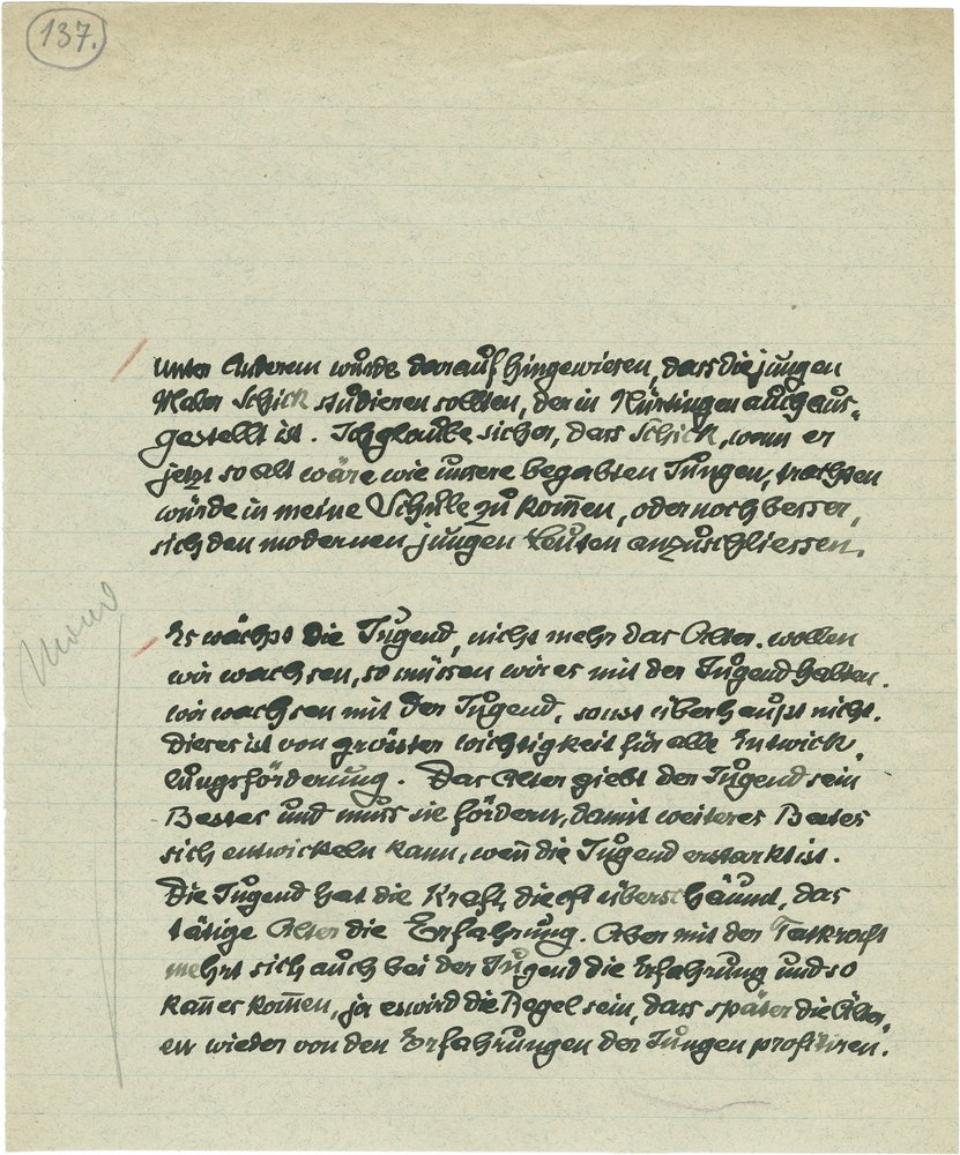 137.
Unter Anderem wurde darauf hingewiesen, dass die jungen
Maler Schick studieren sollten, der in Nürtingen auch aus-
gestellt ist. Ich glaube sicher, dass Schick, wenn er
jetzt so alt wäre wie unsere begabten Jungen, trachten
würde in meine Schule zu kom̅en, oder noch besser,
sich den modernen jungen Leuten anzuschliessen.
Es wächst die Jugend, nicht mehr das Alter. wollen
wir wachsen, so müssen wir es mit der Jugend halten.
wir wachsen mit der Jugend, sonst überhaupt nicht.
Dieses ist von grösster wichtigkeit für alle Entwick-
lungsförderung. Das Alter giebt der Jugend sein
Bestes und muss sie fördern, damit weiteres Bestes
sich entwickeln kann, wen̅ die Jugend erstarkt ist.
Die Jugend hat die Kraft, die oft überschäumt, das
tätige Alter die Erfahrung. Aber mit der Tatkraft
mehrt sich auch bei der Jugend die Erfahrung und so
kan̅ es kom̅en, ja es wird die Regel sein, dass später die Älter-
en wieder von den Erfahrungen der Jungen profitiren.